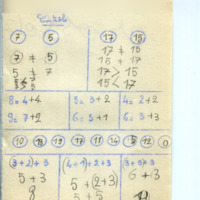 7 5 17 15
7 ≠ 5 17 ≠ 15
5 ≠ 7 15 ≠ 17
17 > 15
15 < 17
8 = 4+4 5 = 3+2 4 = 2+2
9 = 7+2 6 = 5+1 6 = 3+3
10 18 19 17 14 15 12 0
(3+2)+3 (4+1)+2+3 (3+3)+3
5+3 5+(2+3) 6+3
8 5+5